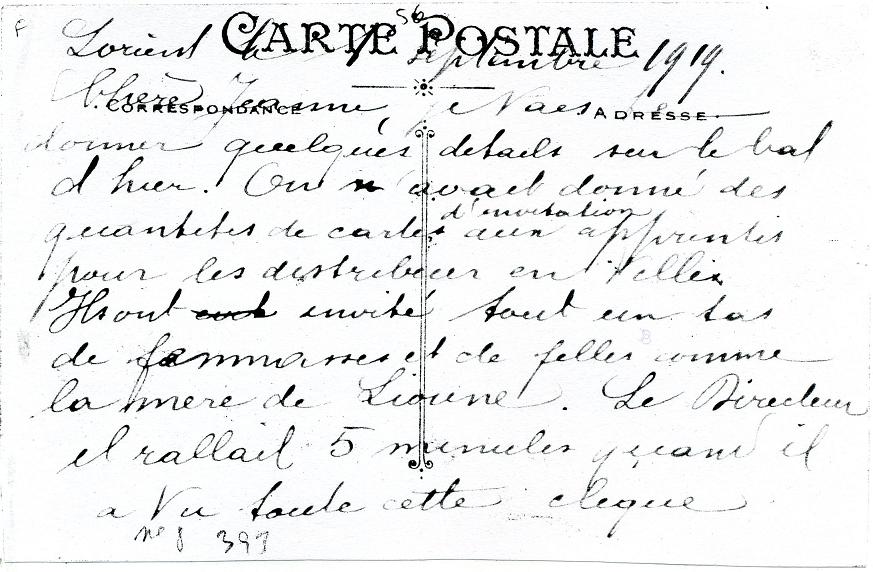 56
CARTE POSTALE
Lorient le 7 septembre 1919.
CORRESPONDANCE
ADRESSE
Chère Jeanne, je Vais te
donner quelques details sur le bal
d hier. On n'avait donné des
d'invitation
quantités de cartes aux apprentis
pour les distribuer en Ville.
Ils ont invité tout un tas
de fammasses et de filles comme
la mere de Lioune. Le Directeur
il rallait 5 minutes quand il
a Vu toute cette clique
393